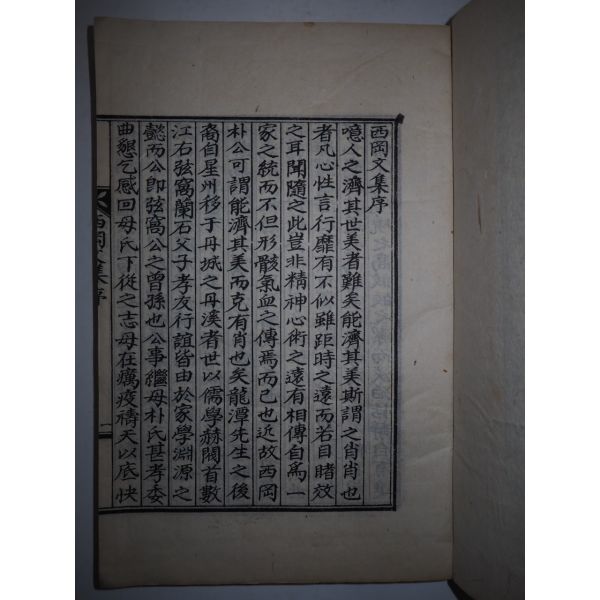 西岡文集序
噫人之濟其世美者難矣能濟其美斯謂之肖肖也
者凡心性言行靡有不似雖距時之遠而若目睹效
之耳聞隨之此豈非精神心術之遠有相傳自爲一
家之統而不但形骸氣血之傳焉而已也近故西岡
朴公可謂能濟其美而克有肖也矣龍潭先生之後
裔自星州移于丹城之丹溪者世以儒學赫閥首數
江右弦窩蘭石父子孝友行誼皆由於家學淵源之
懿而公卽弦窩公之曾孫也公事繼母朴氏甚孝委
曲懇乞感回母氏下從之志母在癘疫禱天以底快
西岡文集序
一